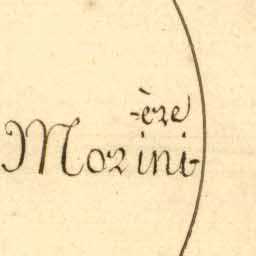 -ère
Morini-